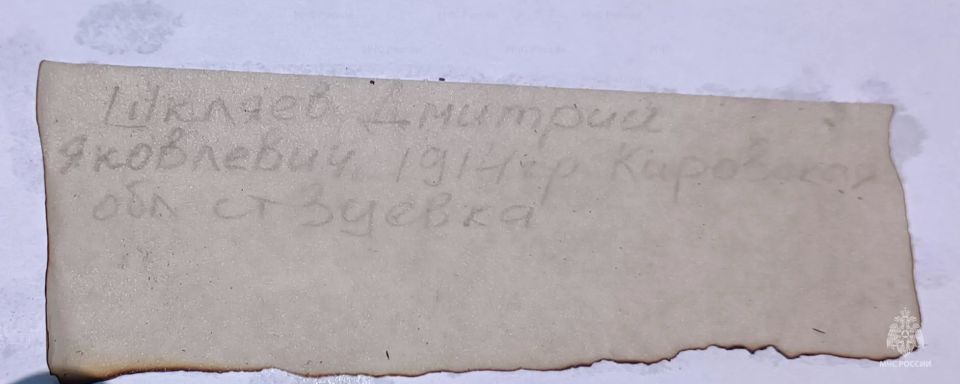 Шкляев Дмитрий
Яковлевич. 1914 г р Кировская
обл ст Зуевка
МЧС РОССИИ